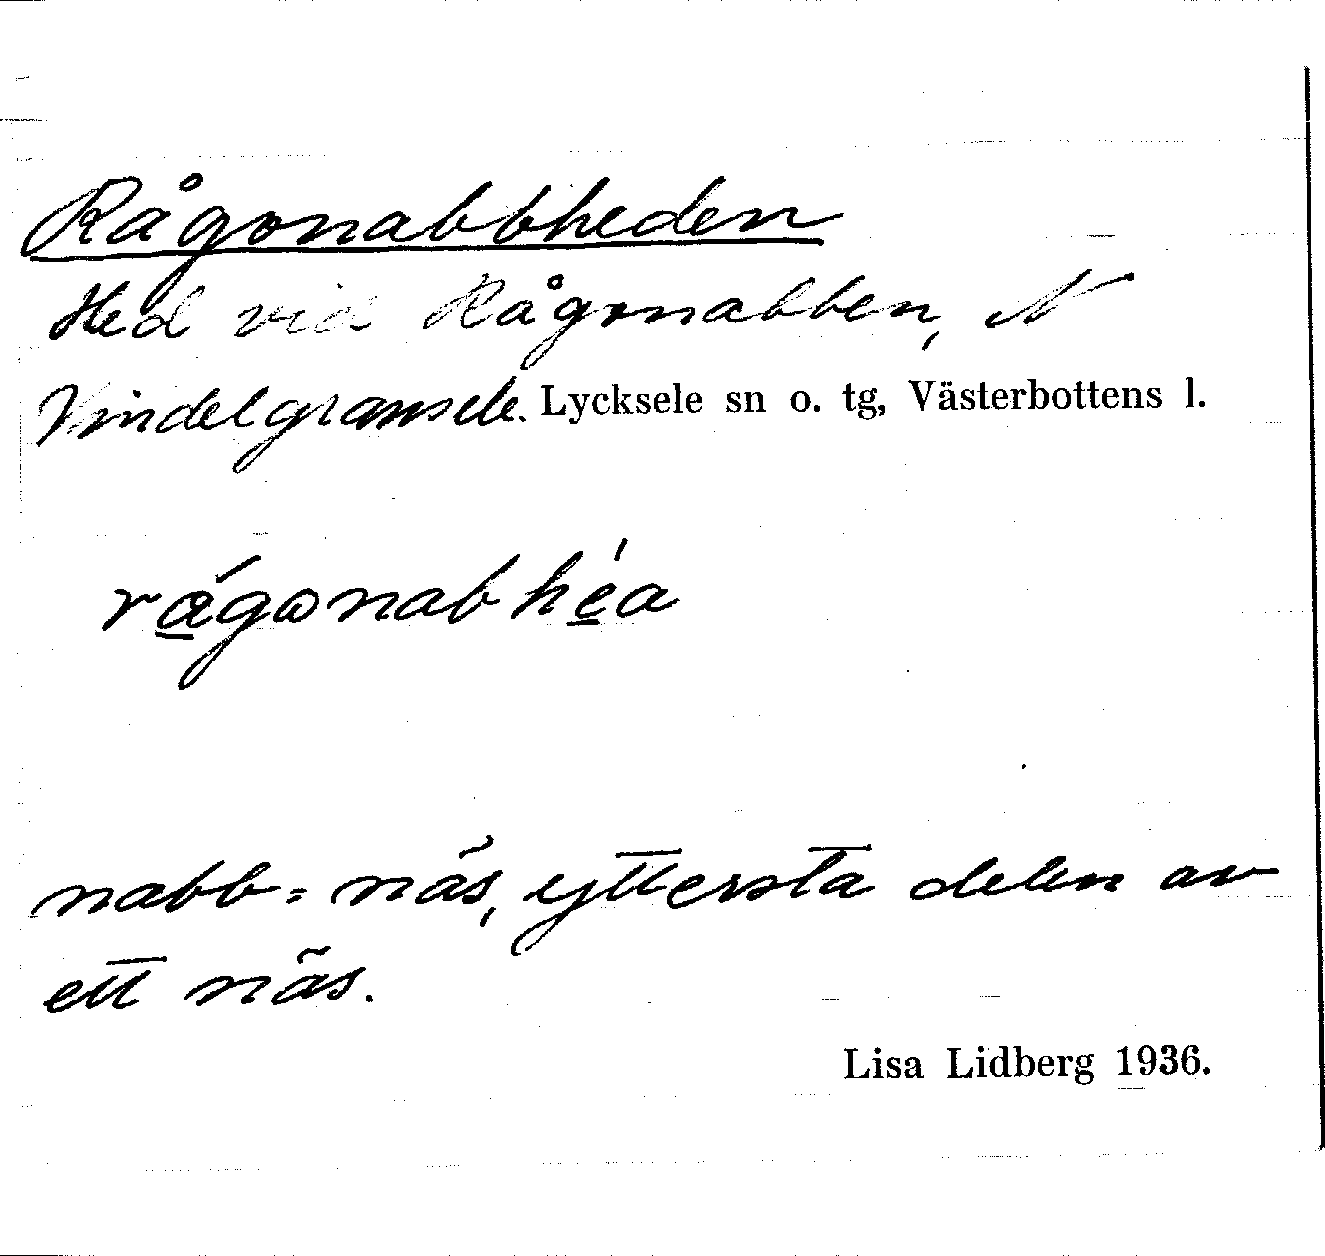 Rågonabbheden
Hed vid Rågonabben, N
Vindelgransele. Lycksele sn o. tg, Västerbottens l.
rágonabhéa
nabb = näs, yttersta delen av
ett näs.
Lisa Lidberg 1936.